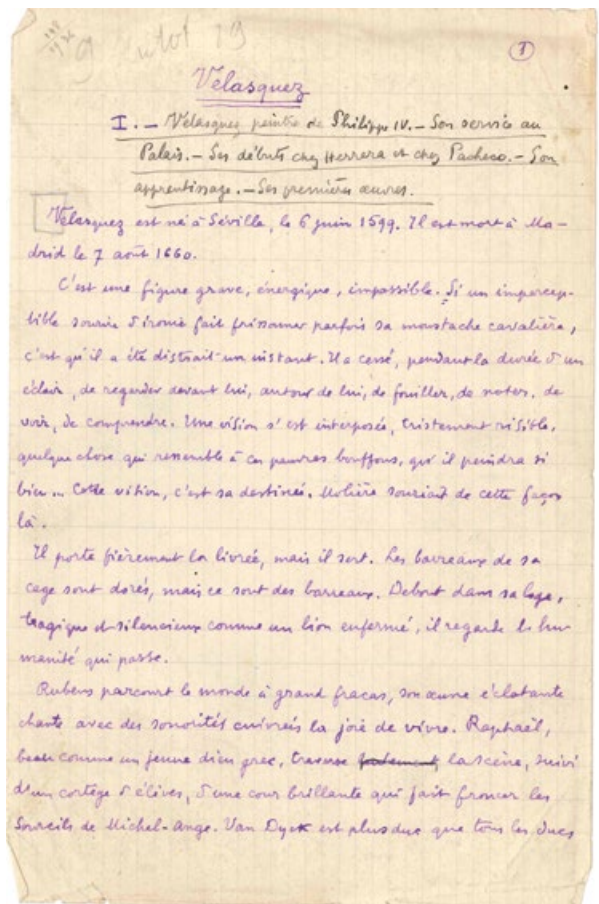 1
Velasquez
I. — Velasquez peintre de Philippe IV. — Son service au
Palais. — Ses débuts chez Herrera et chez Pacheco. — Son
apprentissage. — Ses premières œuvres.
Velasquez est né à Séville, le 6 juin 1599. Il est mort à Ma-
drid le 7 août 1660.
C'est une figure grave, énergique, impassible. Si un impercep-
tible sourire d'ironie fait frissonner parfois sa moustache cavalière,
c'est qu'il a été distrait un instant. Il a cessé, pendant la durée d'un
éclair, de regarder devant lui, autour de lui, de fouiller, de noter, de
voir, de comprendre. Une vision s'est interposée, tristement risible,
quelque chose qui ressemble à ces pauvres bouffons, qu'il peindra si
bien... Cette vision, c'est sa destinée. Molière souriait de cette façon
là.
Il porte fièrement la livrée, mais il sert. Les barreaux de sa
cage sont dorés, mais ce sont des barreaux. Debout dans sa loge,
tragique et silencieux comme un lion enfermé, il regarde l'hu-
manité qui passe.
Rubens parcourt le monde à grand fracas, son œuvre éclatante
chante avec des sonorités cuivrées la joie de vivre. Raphaël,
beau comme un jeune dieu grec, traverse la scène, suivi
d'un cortège d'élèves, d'une cour brillante qui fait froncer les
sourcils de Michel-Ange. Van Dyck est plus duc que tous les ducs